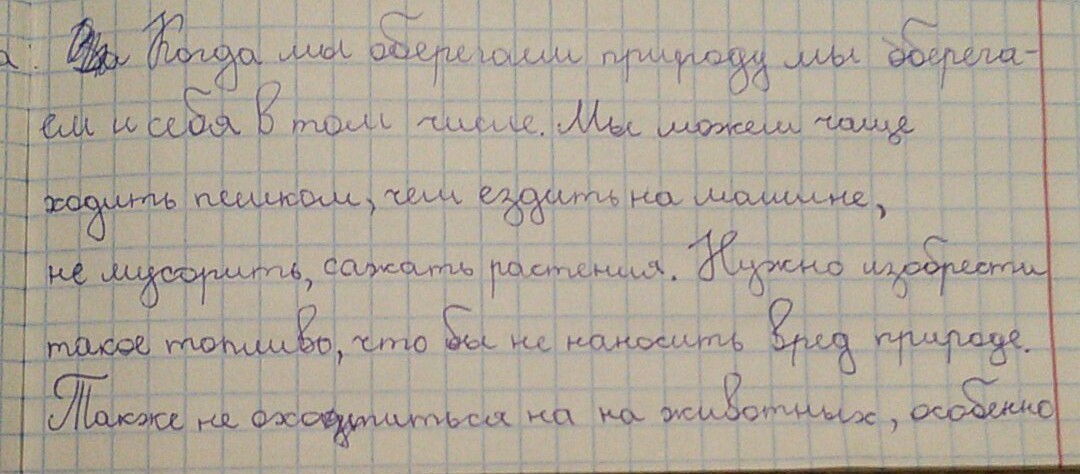 Когда мы оберегаем природу мы оберега-
ем и себя в том числе. Мы можем чаще
ходить пешком, чем ездить на машине,
не мусорить, сажать растения. Нужно изобрести
такое топливо, что бы не наносить вред природе.
Также не охотиться на на животных, особенно